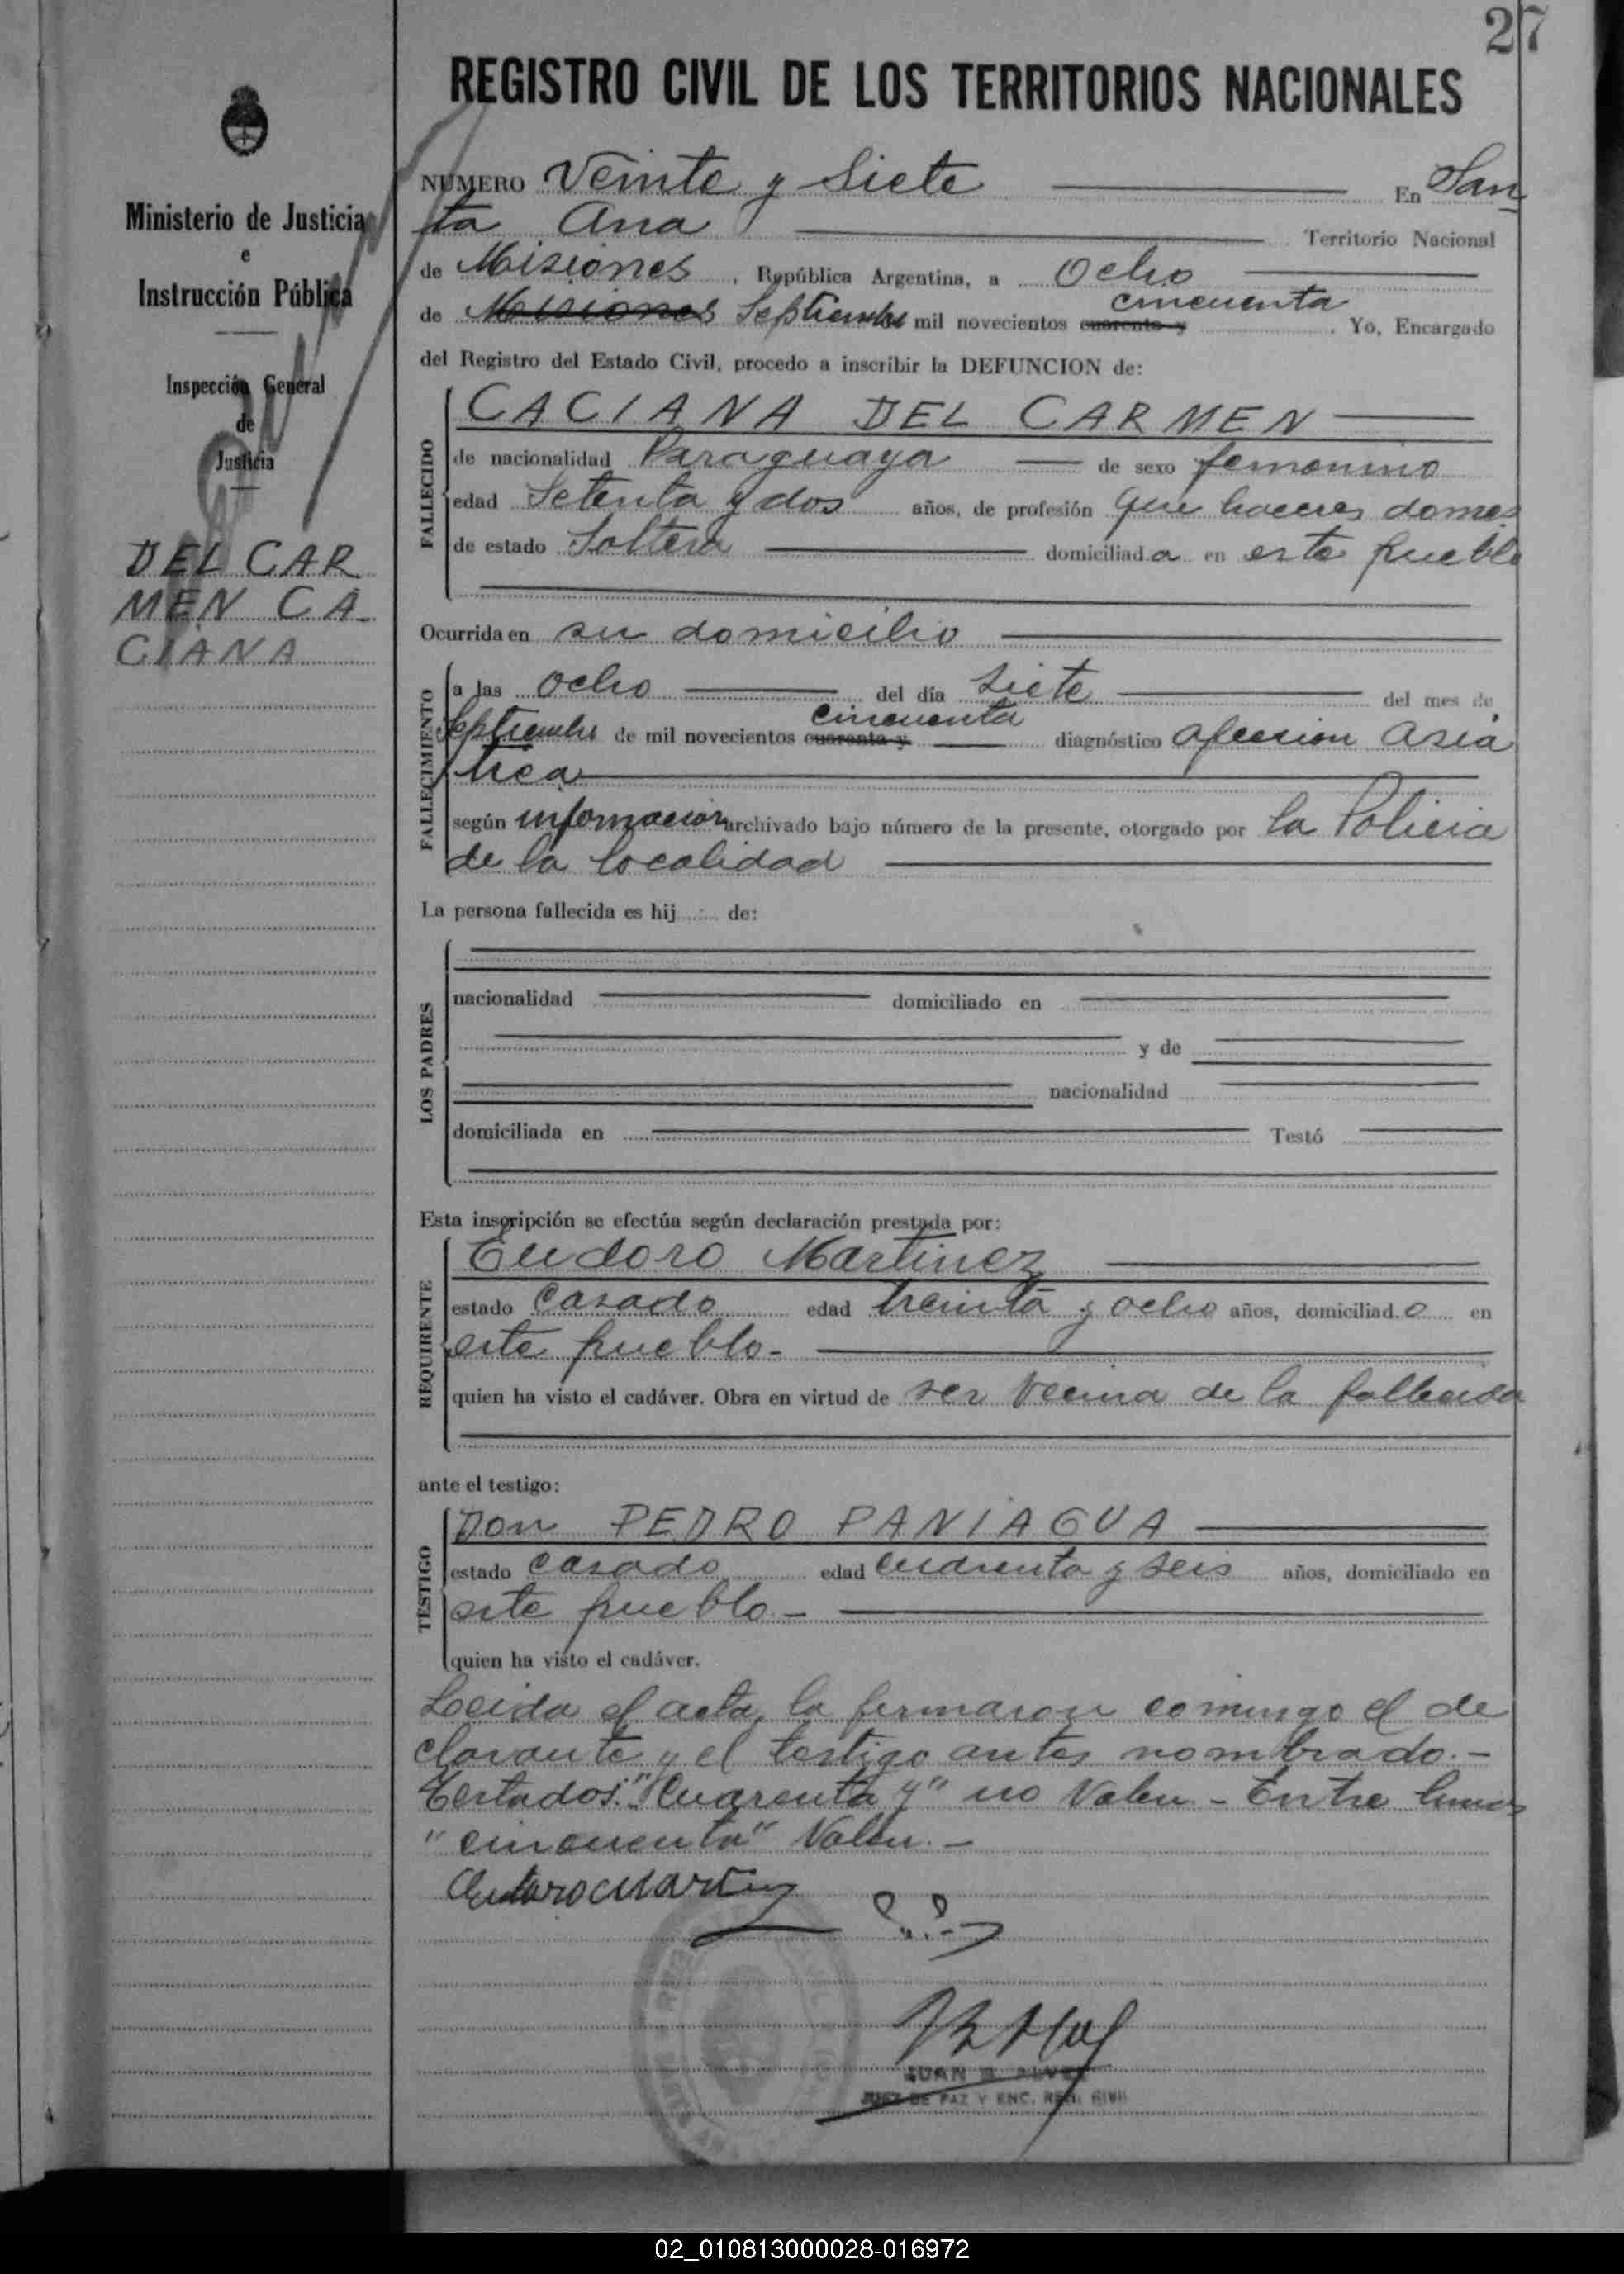 27
REGISTRO CIVIL DE LOS TERRITORIOS NACIONALES
Ministerio de Justicia
e
Instrucción Pública
Inspección General
de
Justicia
DEL CAR
MEN CA-
CIANA
NUMERO Veinte y Siete En San
ta Ana Territorio Nacional
de Misiones, República Argentina, a Ocho
cincuenta
de Misiones Septiembre mil novecientos cuarenta y . Yo, Encargado
del Registro del Estado Civil, procedo a inscribir la DEFUNCION de:
FALLECIDO
CACIANA DEL CARMEN
de nacionalidad Paraguaya de sexo femenino
edad Setenta y dos años, de profesión que haceres domes
de estado Soltera domiciliada en este pueblo
Ocurrida en su domicilio
FALLECIMIENTO
a las ocho del día siete del mes de
cincuenta
Septiembre de mil novecientos cuarenta y diagnóstico afección Asia
tica
según información archivado bajo número de la presente, otorgado por la Policia
de la localidad
La persona fallecida es hij de:
LOS PADRES
nacionalidad domiciliado en
y de
nacionalidad
domiciliada en Testó
Esta inscripción se efectúa según declaración prestada por:
REQUIRENTE
Eudoro Martinez
estado Casado edad treinta y ocho años, domiciliado en
este pueblo-
quien ha visto el cadáver. Obra en virtud de ser vecino de la fallecida
ante el testigo:
TESTIGO
Don PEDRO PANIAGUA
estado Casado edad cuarenta y seis años, domiciliado en
este pueblo-
quien ha visto el cadáver.
Leida el acta, la firmaron conmigo el de
clarante y el testigo antes nombrado.-
Testados: "Cuarenta y" no Valen - Entre lineas
"cincuenta" Valen.-
JUAN B. ALVE
JUEZ DE PAZ Y ENC. REG. CIVIL
02_010813000028-016972